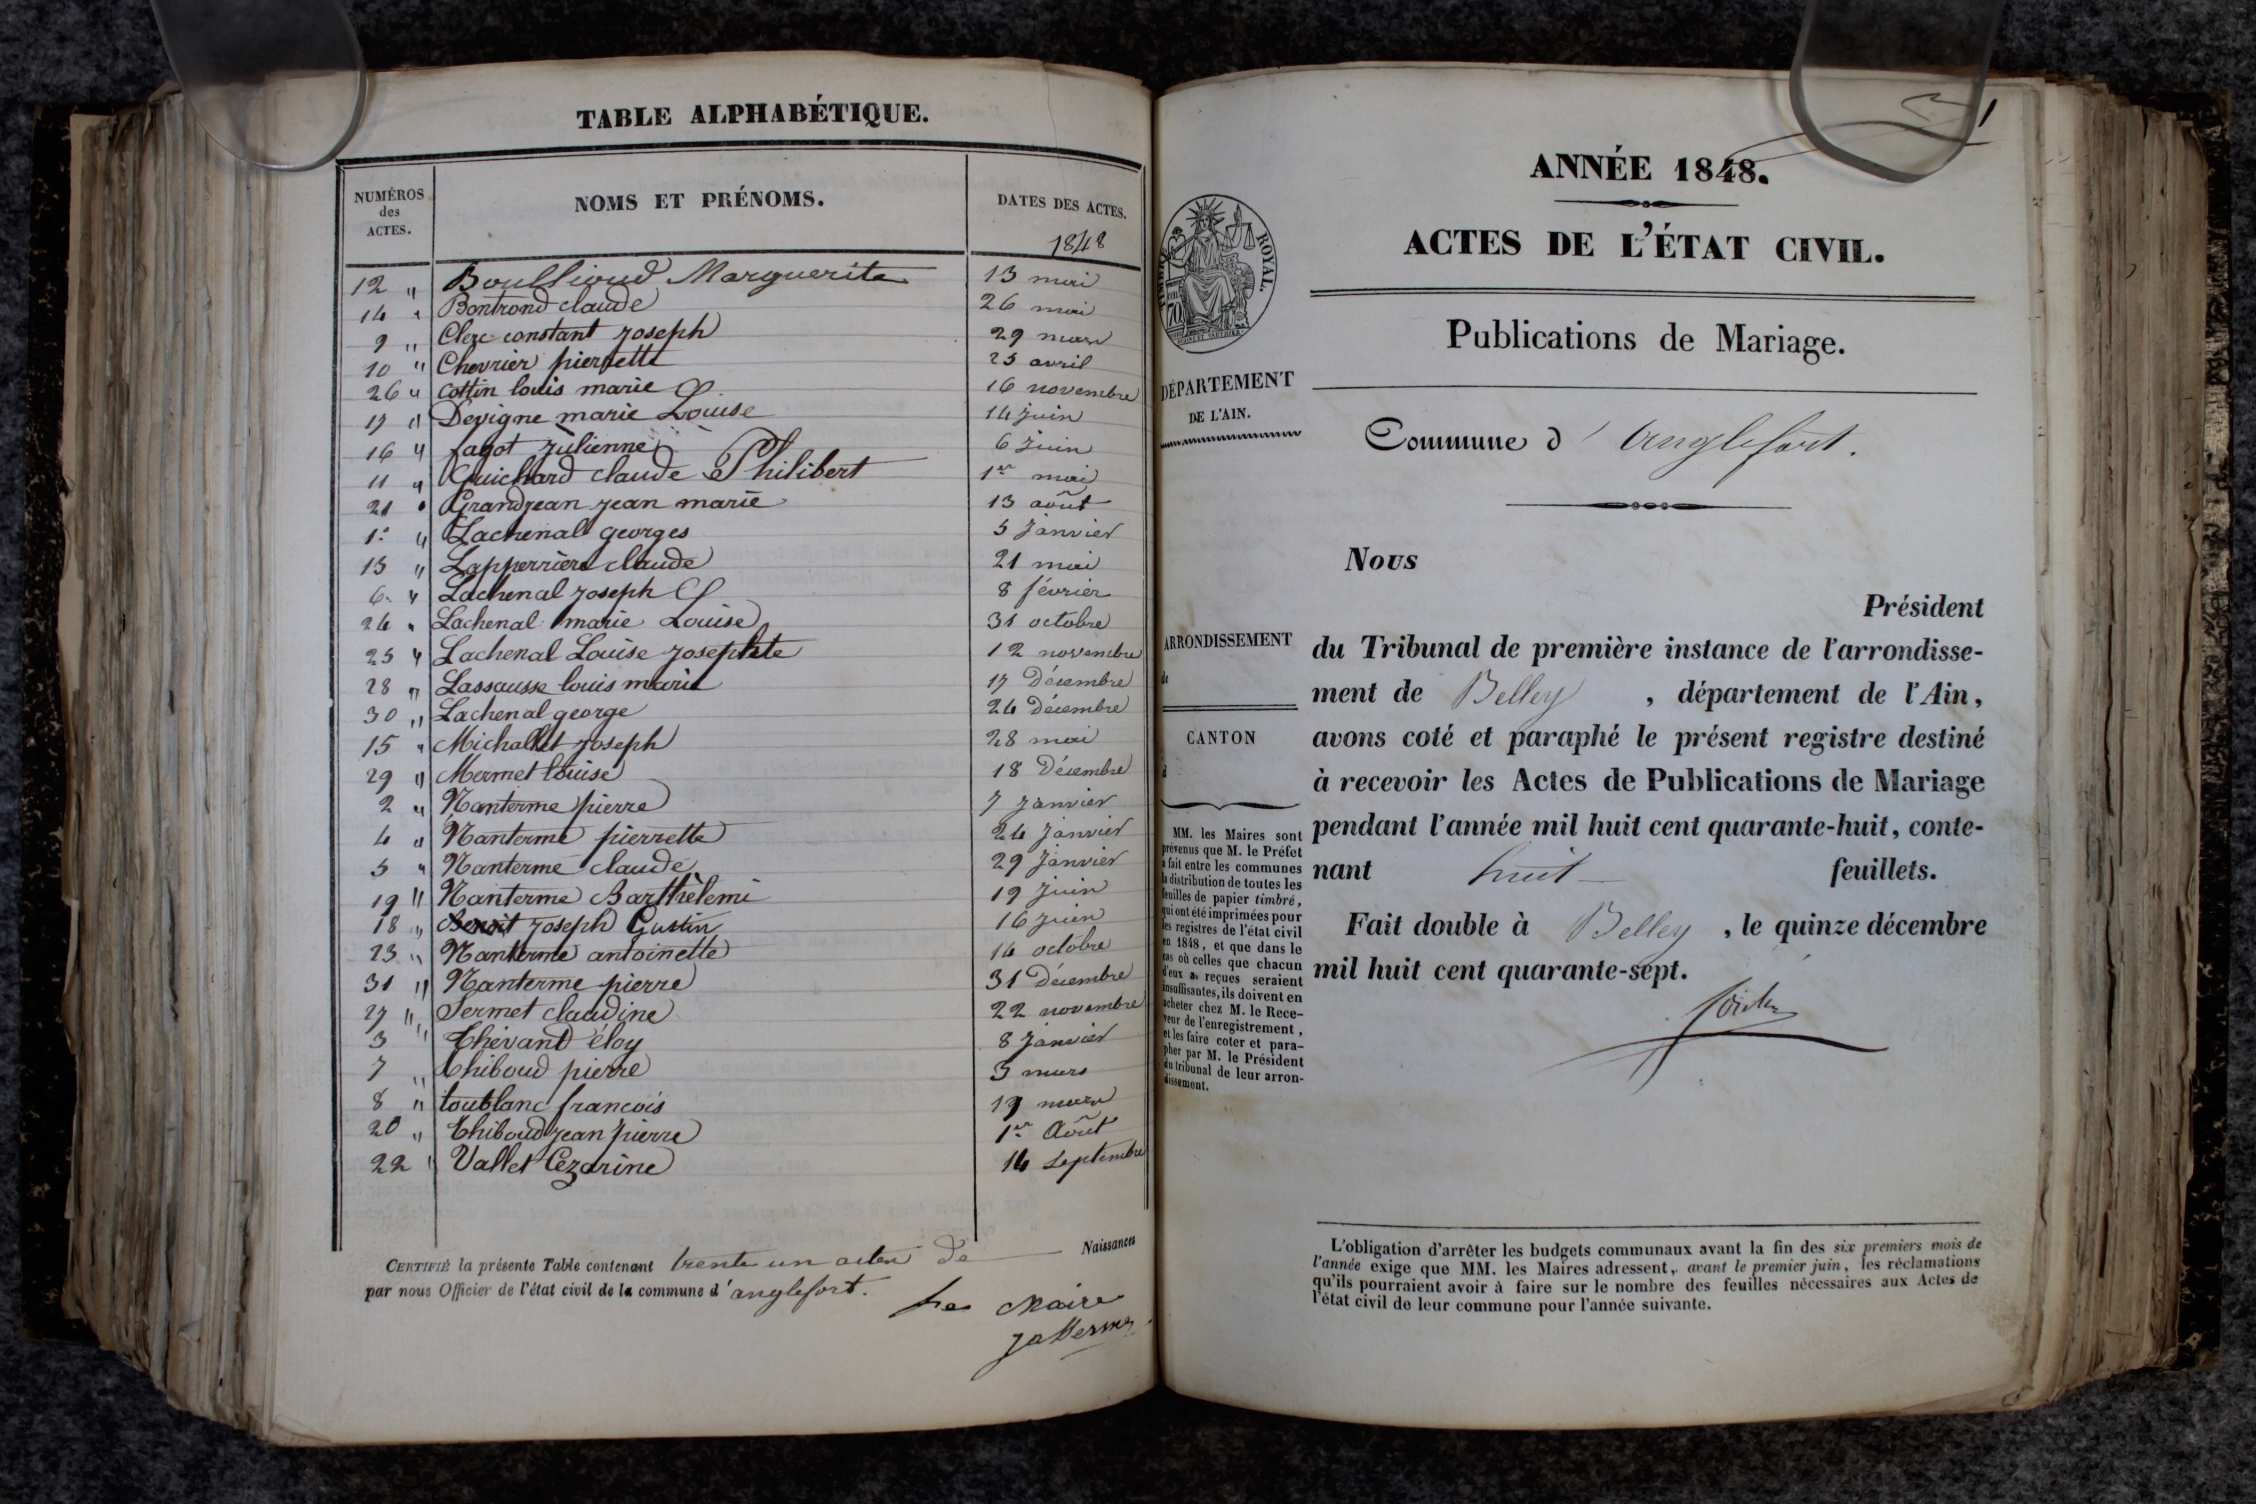 TABLE ALPHABÉTIQUE.
NUMÉROS des ACTES.
NOMS ET PRÉNOMS.
DATES DES ACTES.
1848
12 " Boullioud Marguerite 13 mai
14 " Bontrond claude 26 mai
9 " Clerc constant joseph 29 mars
10 " Chevrier pierrette 25 avril
26 " Cottin louis marie 16 novembre
17 " Devigne marie Louise 14 juin
16 " fagot julienne 6 juin
11 " Guichard claude Philibert 1er mai
21 " Grandjean jean marie 13 août
1: " Lachenal georges 5 janvier
13 " Lapperrière claude 21 mai
6 " Lachenal joseph 8 février
24 " Lachenal marie Louise 31 octobre
25 " Lachenal Louise josephte 12 novembre
28 " Lassausse louis marie 17 Décembre
30 " Lachenal george 24 Décembre
15 " Michallet joseph 28 mai
29 " Mermet louise 18 Décembre
2 " Nanterme pierre 7 janvier
4 " Nanterme pierrette 24 janvier
5 " Nanterme claude 29 janvier
19 " Nanterme Barthèlemi 19 juin
18 " Benoit joseph Gustin 16 juin
23 " Nanterme antoinette 14 octobre
31 " Nanterme pierre 31 Décembre
27 " Sermet claudine 22 novembre
3 " Thévand éloy 8 janvier
7 " Thiboud pierre 5 mars
8 " toublanc francois 19 mars
20 " Thiboud jean pierre 1er Août
22 " Vallet Cezarine 14 septembre
CERTIFIÉ la présente Table contenant trente un actes de Naissances
par nous Officier de l'état civil de la commune d'anglefort.
Le Maire
ANNÉE 1848.
1
ACTES DE L'ÉTAT CIVIL.
Publications de Mariage.
TIMBRE ROYAL.
DÉPARTEMENT
DE L'AIN.
Commune d'Anglefort.
ARRONDISSEMENT
de
CANTON
MM. les Maires sont
prévenus que M. le Préfet
a fait entre les communes
la distribution de toutes les
feuilles de papier timbré,
qui ont été imprimées pour
les registres de l'état civil
en 1848, et que dans le
cas où celles que chacun
d'eux a reçues seraient
insuffisantes, ils doivent en
acheter chez M. le Rece-
veur de l'enregistrement,
et les faire coter et para-
pher par M. le Président
du tribunal de leur arron-
dissement.
Nous
Président
du Tribunal de première instance de l'arrondisse-
ment de Belley, département de l'Ain,
avons coté et paraphé le présent registre destiné
à recevoir les Actes de Publications de Mariage
pendant l'année mil huit cent quarante-huit, conte-
nant huit feuillets.
Fait double à Belley, le quinze décembre
mil huit cent quarante-sept.
L'obligation d'arrêter les budgets communaux avant la fin des six premiers mois de
l'année exige que MM. les Maires adressent, avant le premier juin, les réclamations
qu'ils pourraient avoir à faire sur le nombre des feuilles nécessaires aux Actes de
l'état civil de leur commune pour l'année suivante.